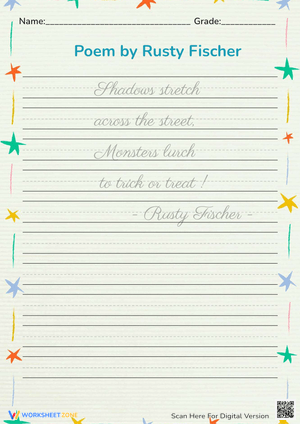 Name:____________________________ Grade:____________
Poem by Rusty Fischer
Shadows stretch
across the street,
Monsters lurch
to trick or treat !
- Rusty Fischer -
WORKSHEETZONE
Scan Here For Digital Version